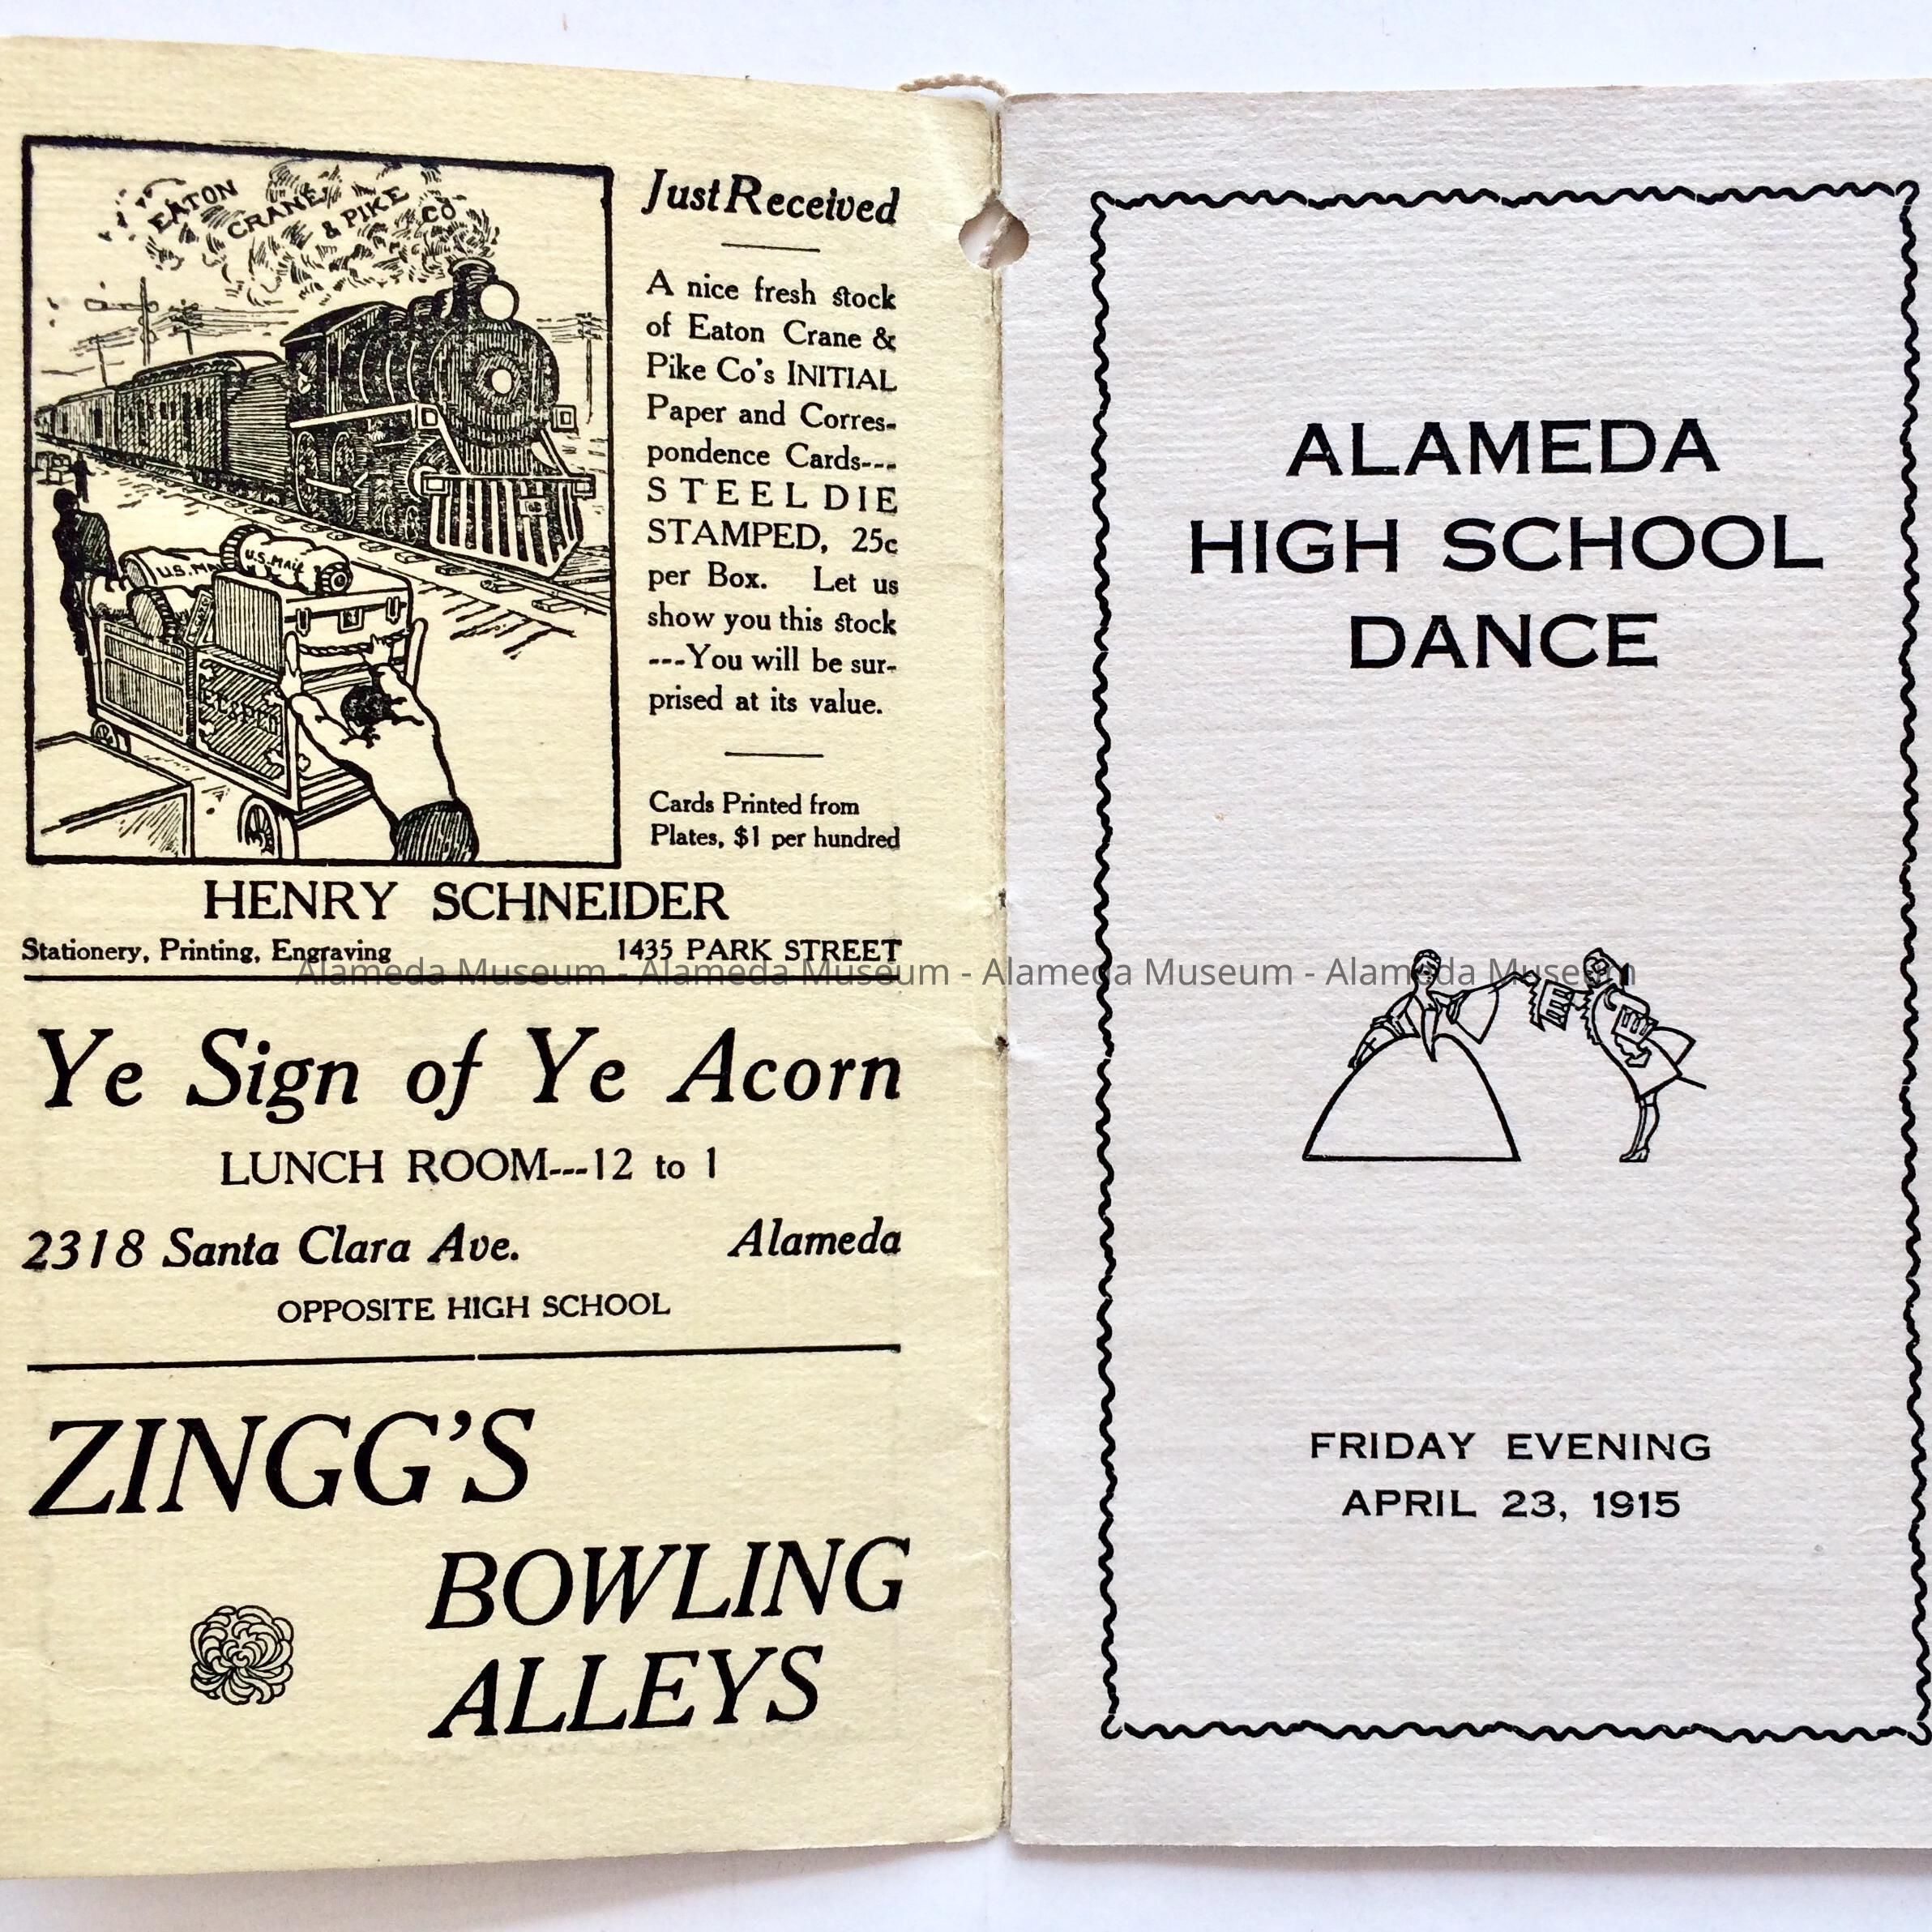 EATON
CRANE
& PIKE CO
U.S. MA
U.S. MAIL
Just Received
A nice fresh stock
of Eaton Crane &
Pike Co's INITIAL
Paper and Corres-
pondence Cards---
STEEL DIE
STAMPED, 25c
per Box. Let us
show you this stock
---You will be sur-
prised at its value.
Cards Printed from
Plates, $1 per hundred
HENRY SCHNEIDER
Stationery, Printing, Engraving 1435 PARK STREET
Ye Sign of Ye Acorn
LUNCH ROOM---12 to 1
2318 Santa Clara Ave. Alameda
OPPOSITE HIGH SCHOOL
ZINGG'S
BOWLING
ALLEYS
ALAMEDA
HIGH SCHOOL
DANCE
FRIDAY EVENING
APRIL 23, 1915
Alameda Museum - Alameda Museum - Alameda Museum - Alameda Museum